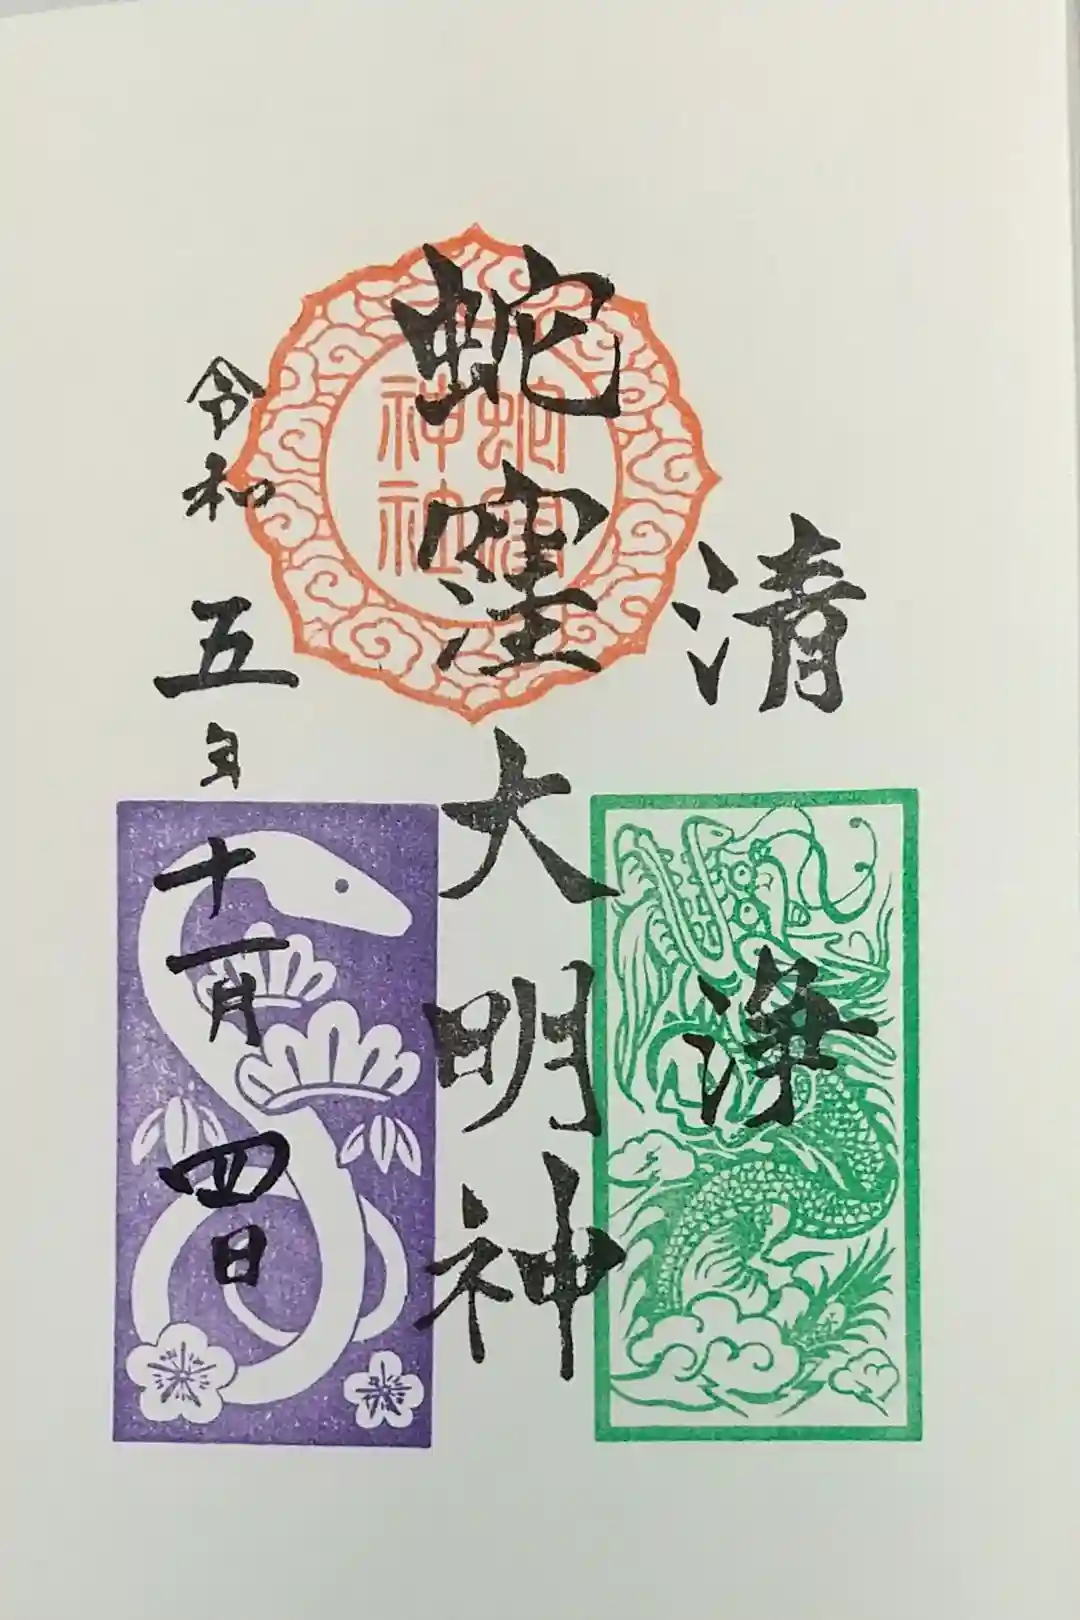 清浄
蛇窪大明神
蛇窪
神社
令和五年十一月四日